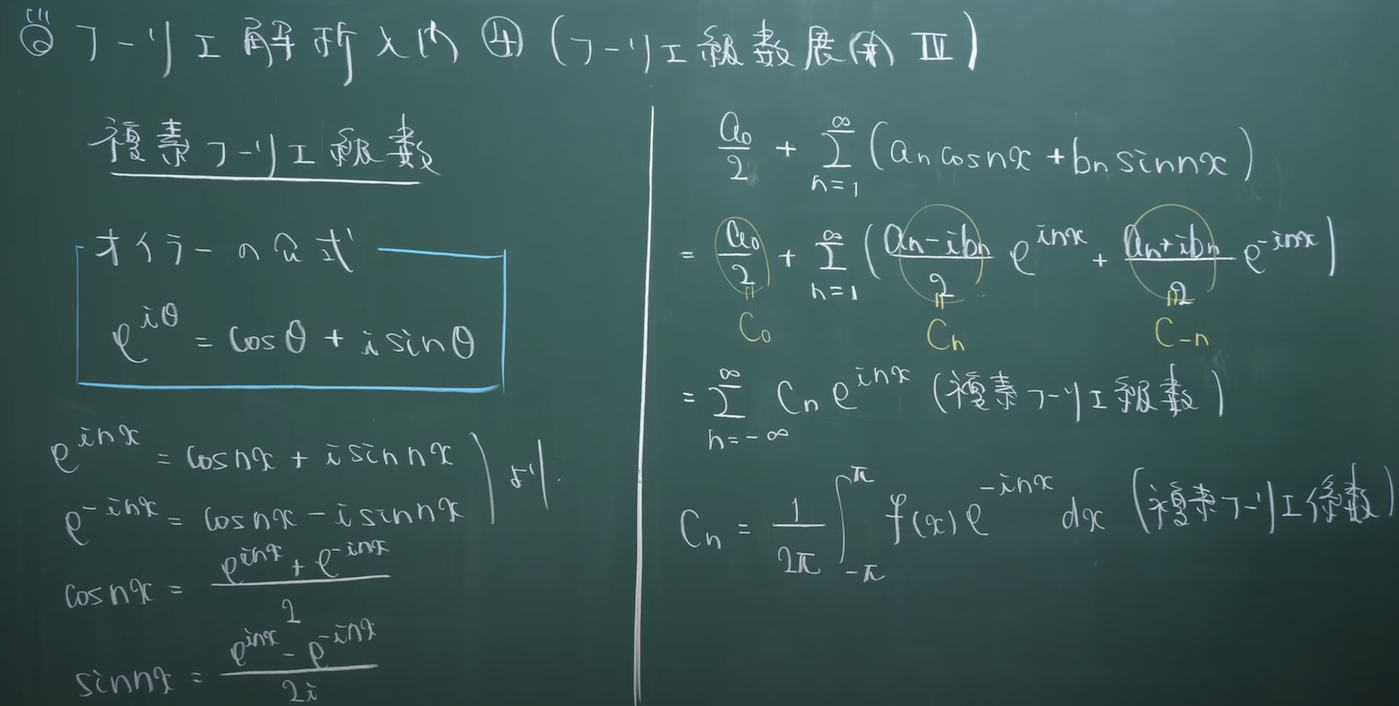 フーリエ解析入門④(フーリエ級数展開Ⅳ)
複素フーリエ級数
オイラーの公式
e^{iθ} = cosθ + i sinθ
e^{inx} = cosnx + i sinnx
e^{-inx} = cosnx - i sinnx
より.
cosnx = \frac{e^{inx} + e^{-inx}}{2}
sinnx = \frac{e^{inx} - e^{-inx}}{2i}
\frac{a_0}{2} + \sum_{n=1}^{∞} (a_n cosnx + b_n sinnx)
= \frac{a_0}{2} + \sum_{n=1}^{∞} (\frac{a_n - ib_n}{2} e^{inx} + \frac{a_n + ib_n}{2} e^{-inx})
= C_0 = C_n = C_{-n}
= \sum_{n=-∞}^{∞} C_n e^{inx} (複素フーリエ級数)
C_n = \frac{1}{2π} \int_{-π}^{π} f(x) e^{-inx} dx (複素フーリエ係数)